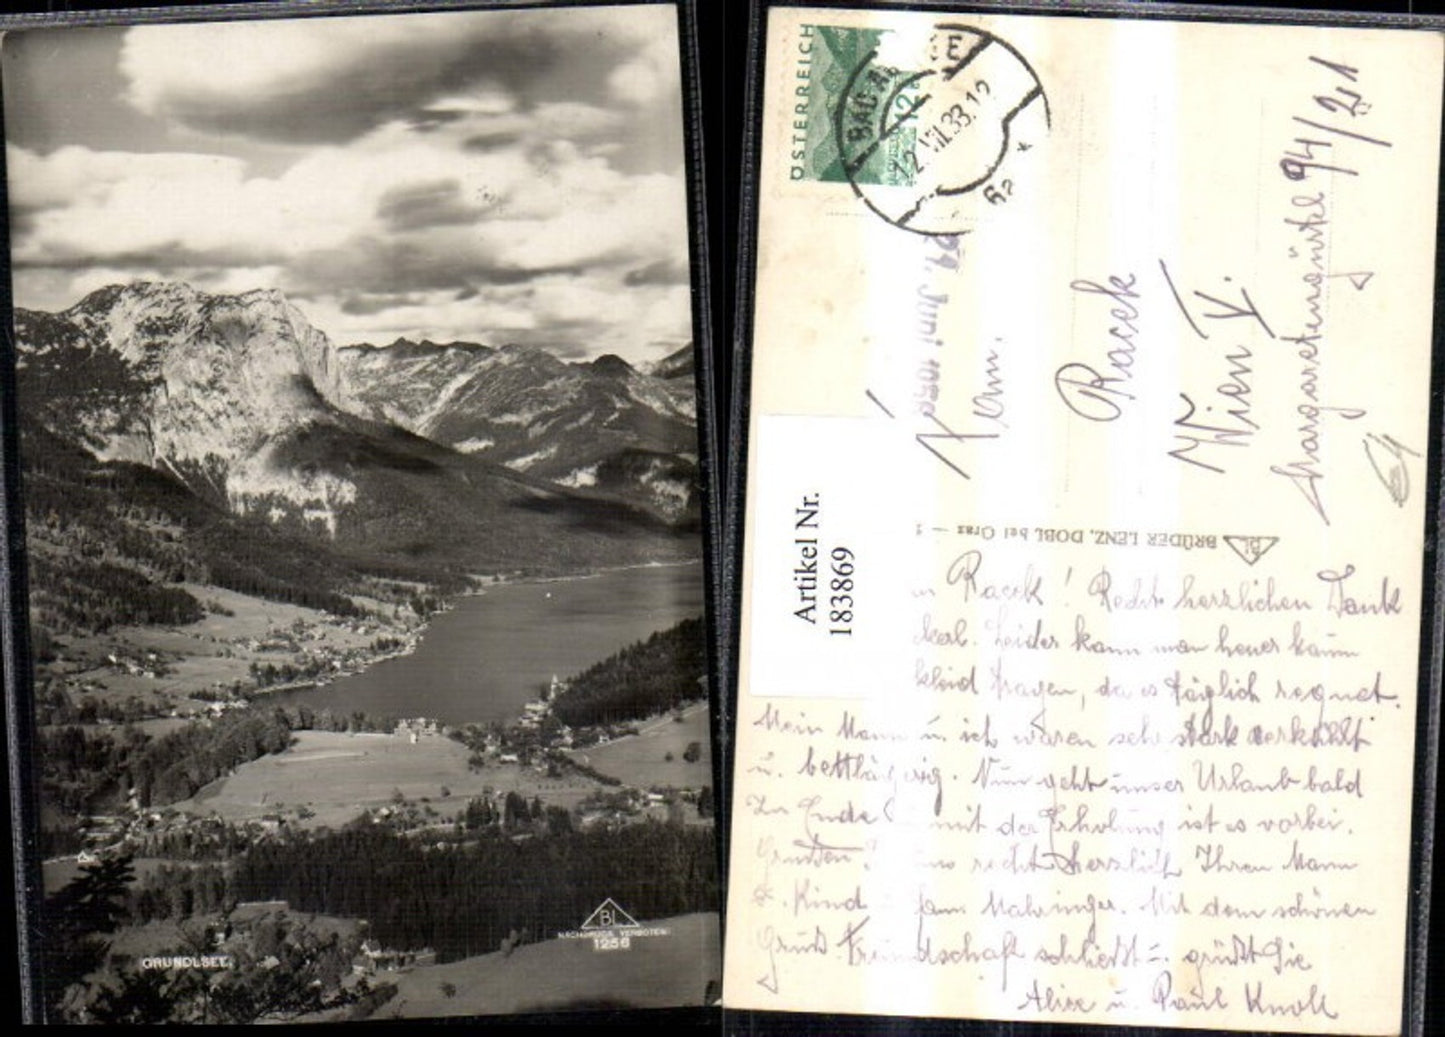 GRUNDLSEE.
BL
NACHDRUCK VERBOTEN!
1256
ÖSTERREICH
12
BAD AU EE
VII.33.12
6a
*
21. Juni
Artikel Nr.
183869
Fam.
Racek
Wien V.
Margaretengürtel 94/2
BL BRÜDER LENZ, DOBL bei Graz
Racek! Recht herzlichen Dank
Leider kann man heuer kaum
kleid tragen, da es täglich regnet.
Mein Mann u. ich waren sehr stark verkühlt
u. bettlägerig. Nun geht unser Urlaub bald
zu Ende mit der Erholung ist es vorbei.
recht herzlich Ihren Mann
Kind Fam. Mit dem schönen
Gruß Freundschaft schließt u. grüßt Sie
Alice u. Paul Knoll